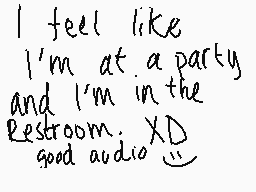 I feel like
I'm at a party
and I'm in the
Restroom. XD
good audio